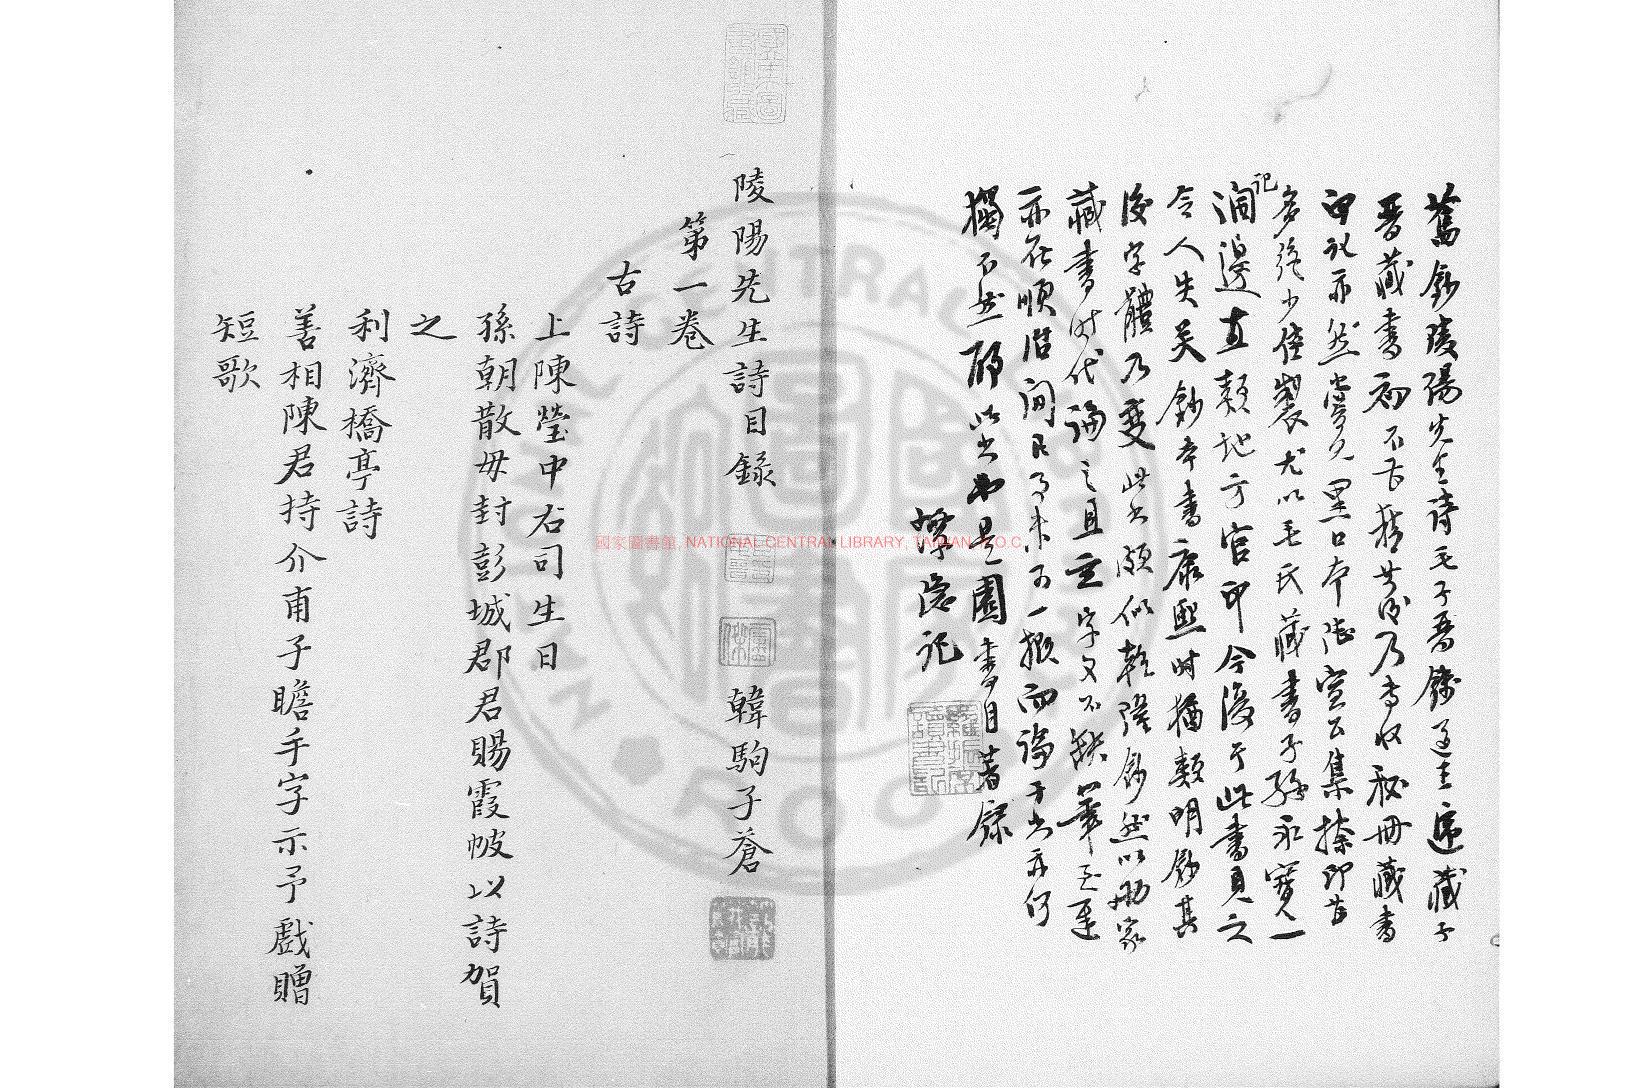 舊鈔陵陽先生詩毛子晉錢遵王遞藏子
晉藏書初不甚精其後乃專收秘冊藏書
印記亦然嘗見黑口本陸宣公集捺印甚
多絕少佳製尤以毛氏藏書子孫永寶一
記潤邊直類地方官印今復于此書見之
令人失笑鈔本書康熙時猶類明鈔其
後字體乃變此書頗似乾隆鈔然以兩家
藏書時代論之且玄字又不缺筆至遲
亦在順治間凡事未可一概而論于書亦何
獨不然所以也是園書目著錄
陵陽先生詩目錄 韓駒子蒼
第一卷
古詩
上陳瑩中右司生日
孫朝散母封彭城郡君賜霞帔以詩賀
之
利濟橋亭詩
善相陳君持介甫子瞻手字示予戲贈
短歌
國家圖書館, NATIONAL CENTRAL LIBRARY, TAIWAN, R.O.C